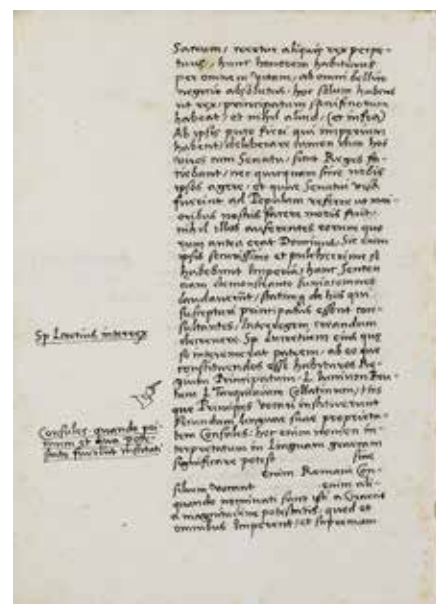 Sacrum, vocetur aliquis rex perpe-
tuus, hunc honorem habiturus
per omnem vitam, ab omni bellico
negotio absolutus, hoc solum habens
ut rex, principatum sacrificiorum
habeat, et nihil aliud, (et infra)
Ab ipsis fieri qui imperium
habent, deliberare tamen
viros cum Senatu, sicut Reges fa-
ciebant, nec quicquam sine nobis
ipsos agere, et quae Senatui
fuerint ad Populum referre ut mai-
oribus nostris facere moris fuit,
nihil illos auferentes eorum quo
rum antea erat Dominus, Sic enim
ipsis securissime et pulcherrime se
habebunt Imperia, hanc Senten
tiam
laudaverunt, de his qui
suscepturi principatus essent con-
sultantes, Interregem creandum
decrevere Sp. Lucretium eius quae
se interemerat patrem, ab eo que
constituendos esse habituros Re-
gium Principatum. L. Iunium Bru-
tum L. Tarquinium Collatinum, Hos
que Principes vocari instituerunt
secundum linguae suae proprieta-
tem Consules: hoc enim nomen in-
terpretatum in Linguam graecam
significare potest sive
enim Romani Con-
silium vocant enim ali-
quando nominati sunt isti a Graecis
a magnitudine potestatis, quod et
omnibus Imperent, et supremam
Sp Lucretius interrex
Consules quando pri-
mum et qua pote-
state fuerint instituti